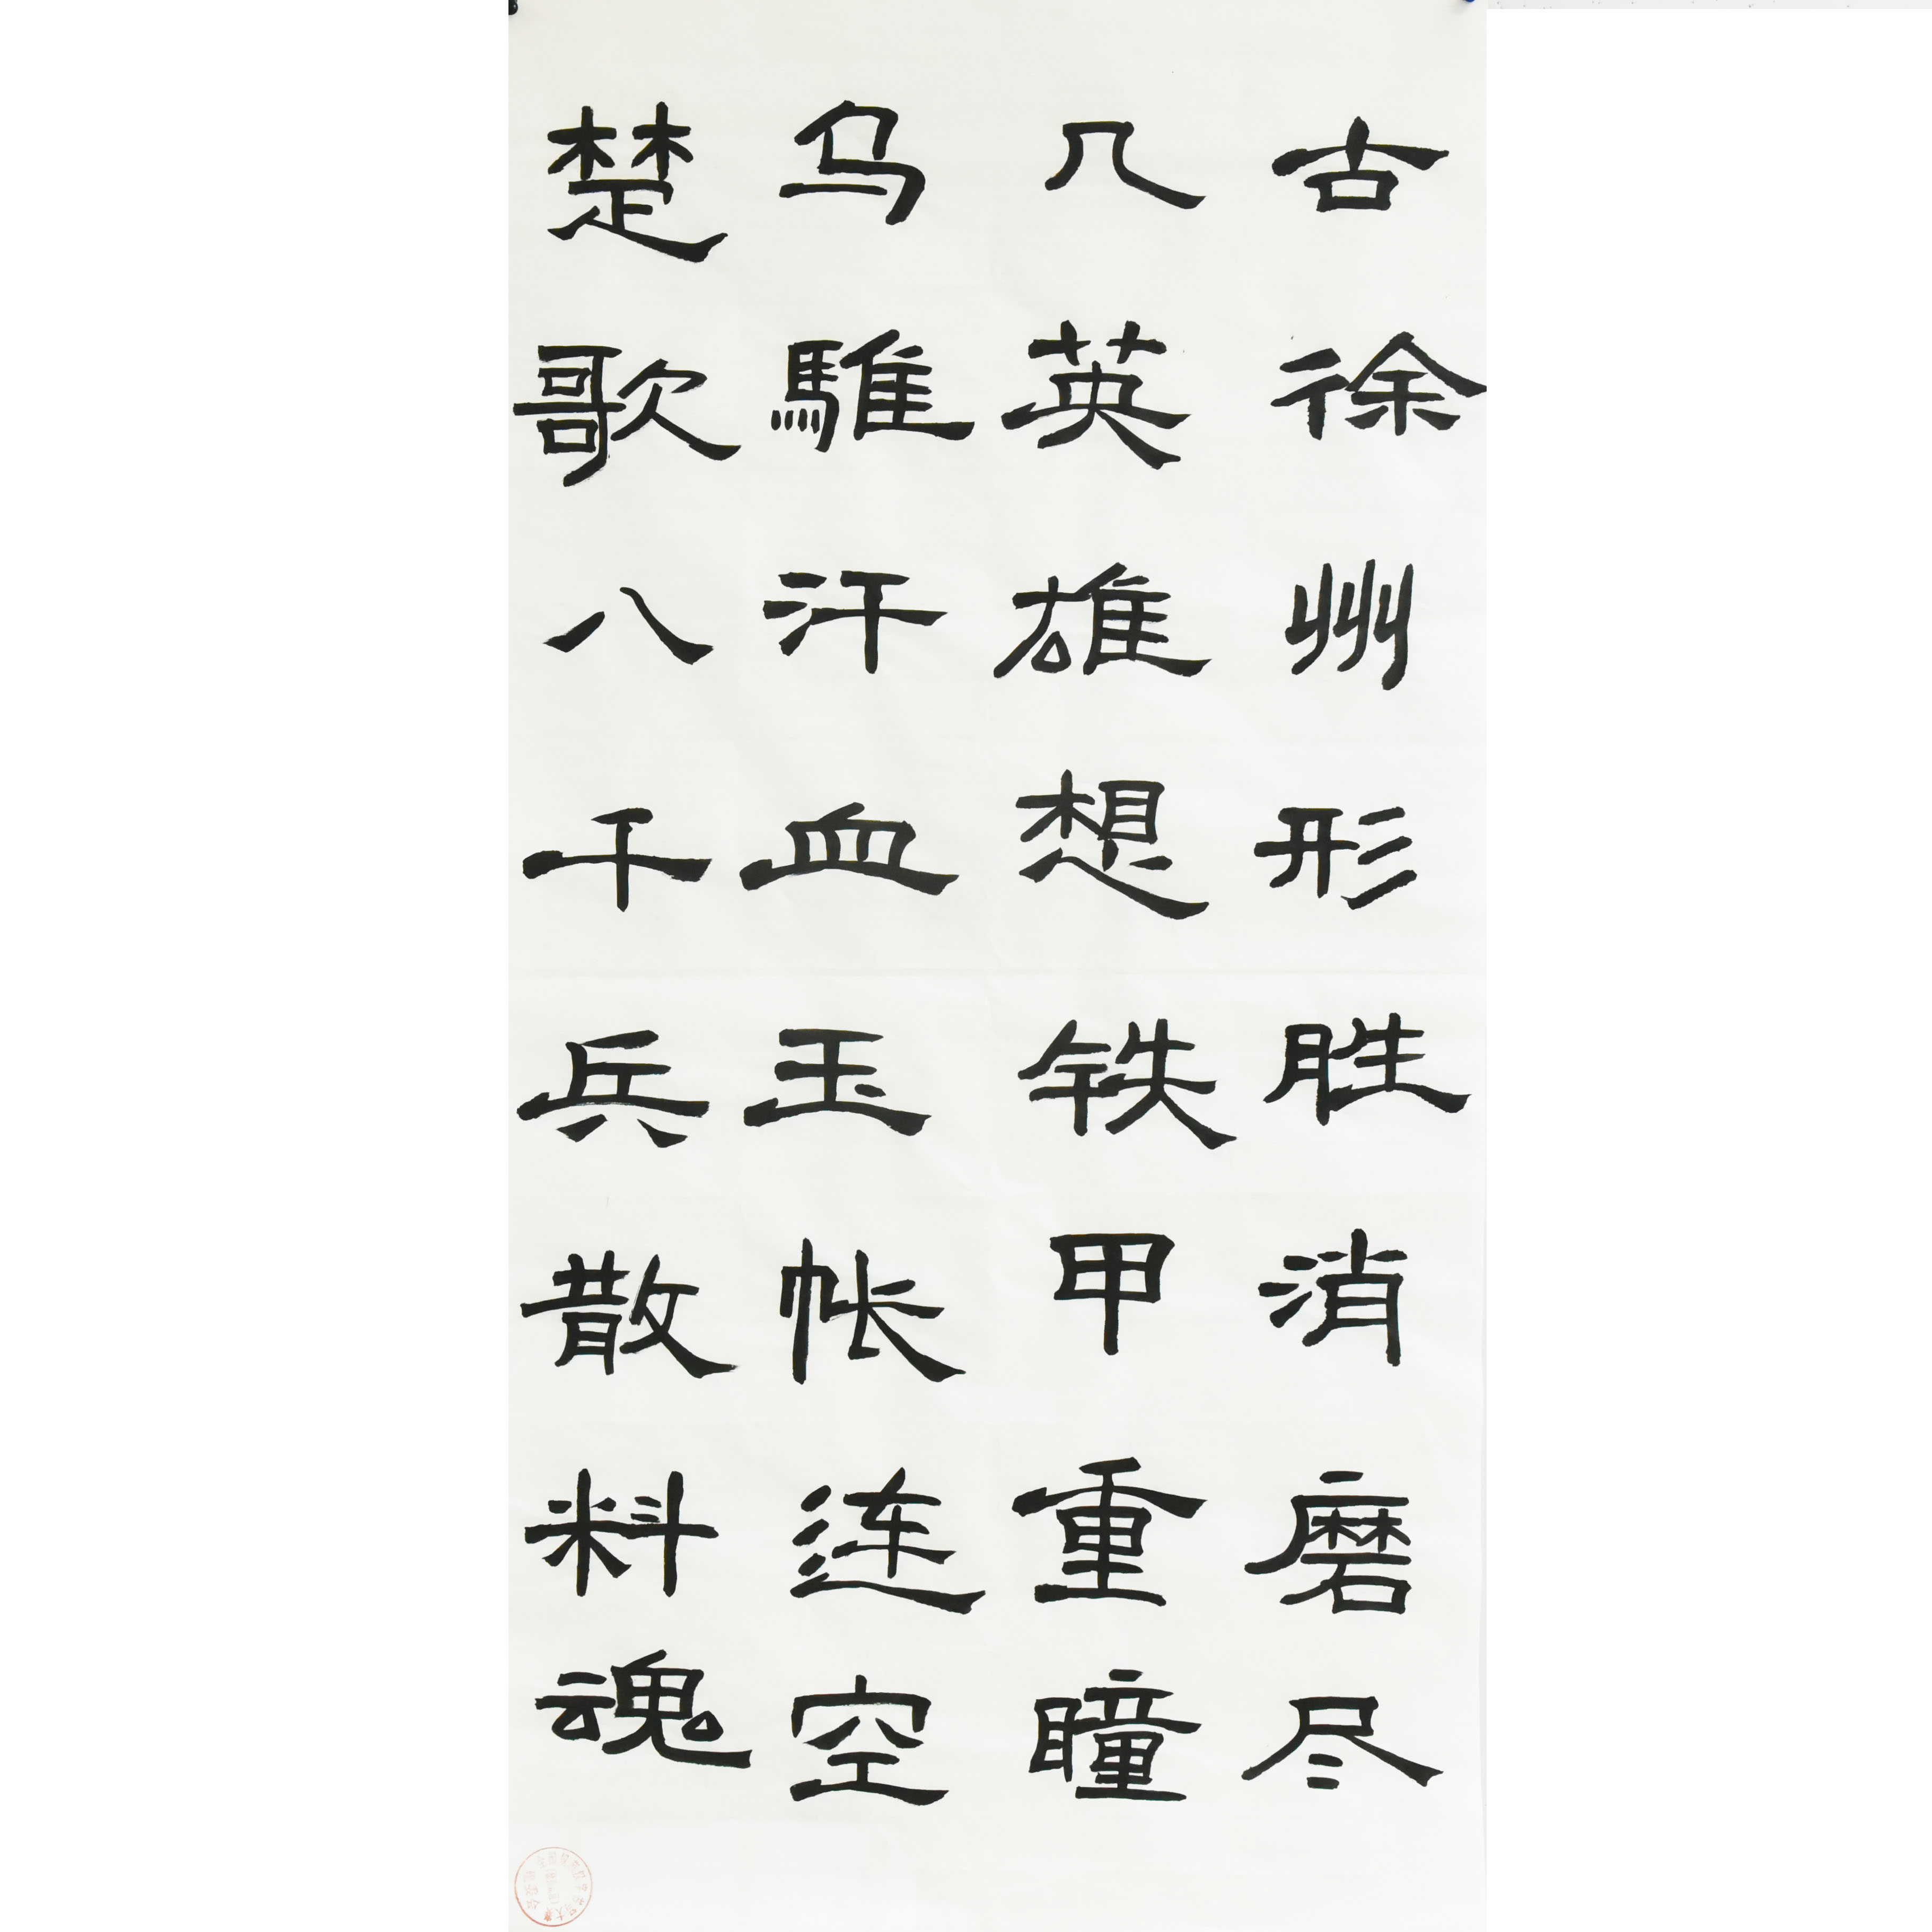 古徐州形胜消磨尽
几英雄想铁甲重瞳
乌騅汗血玉帐连空
楚歌八千兵散料魂